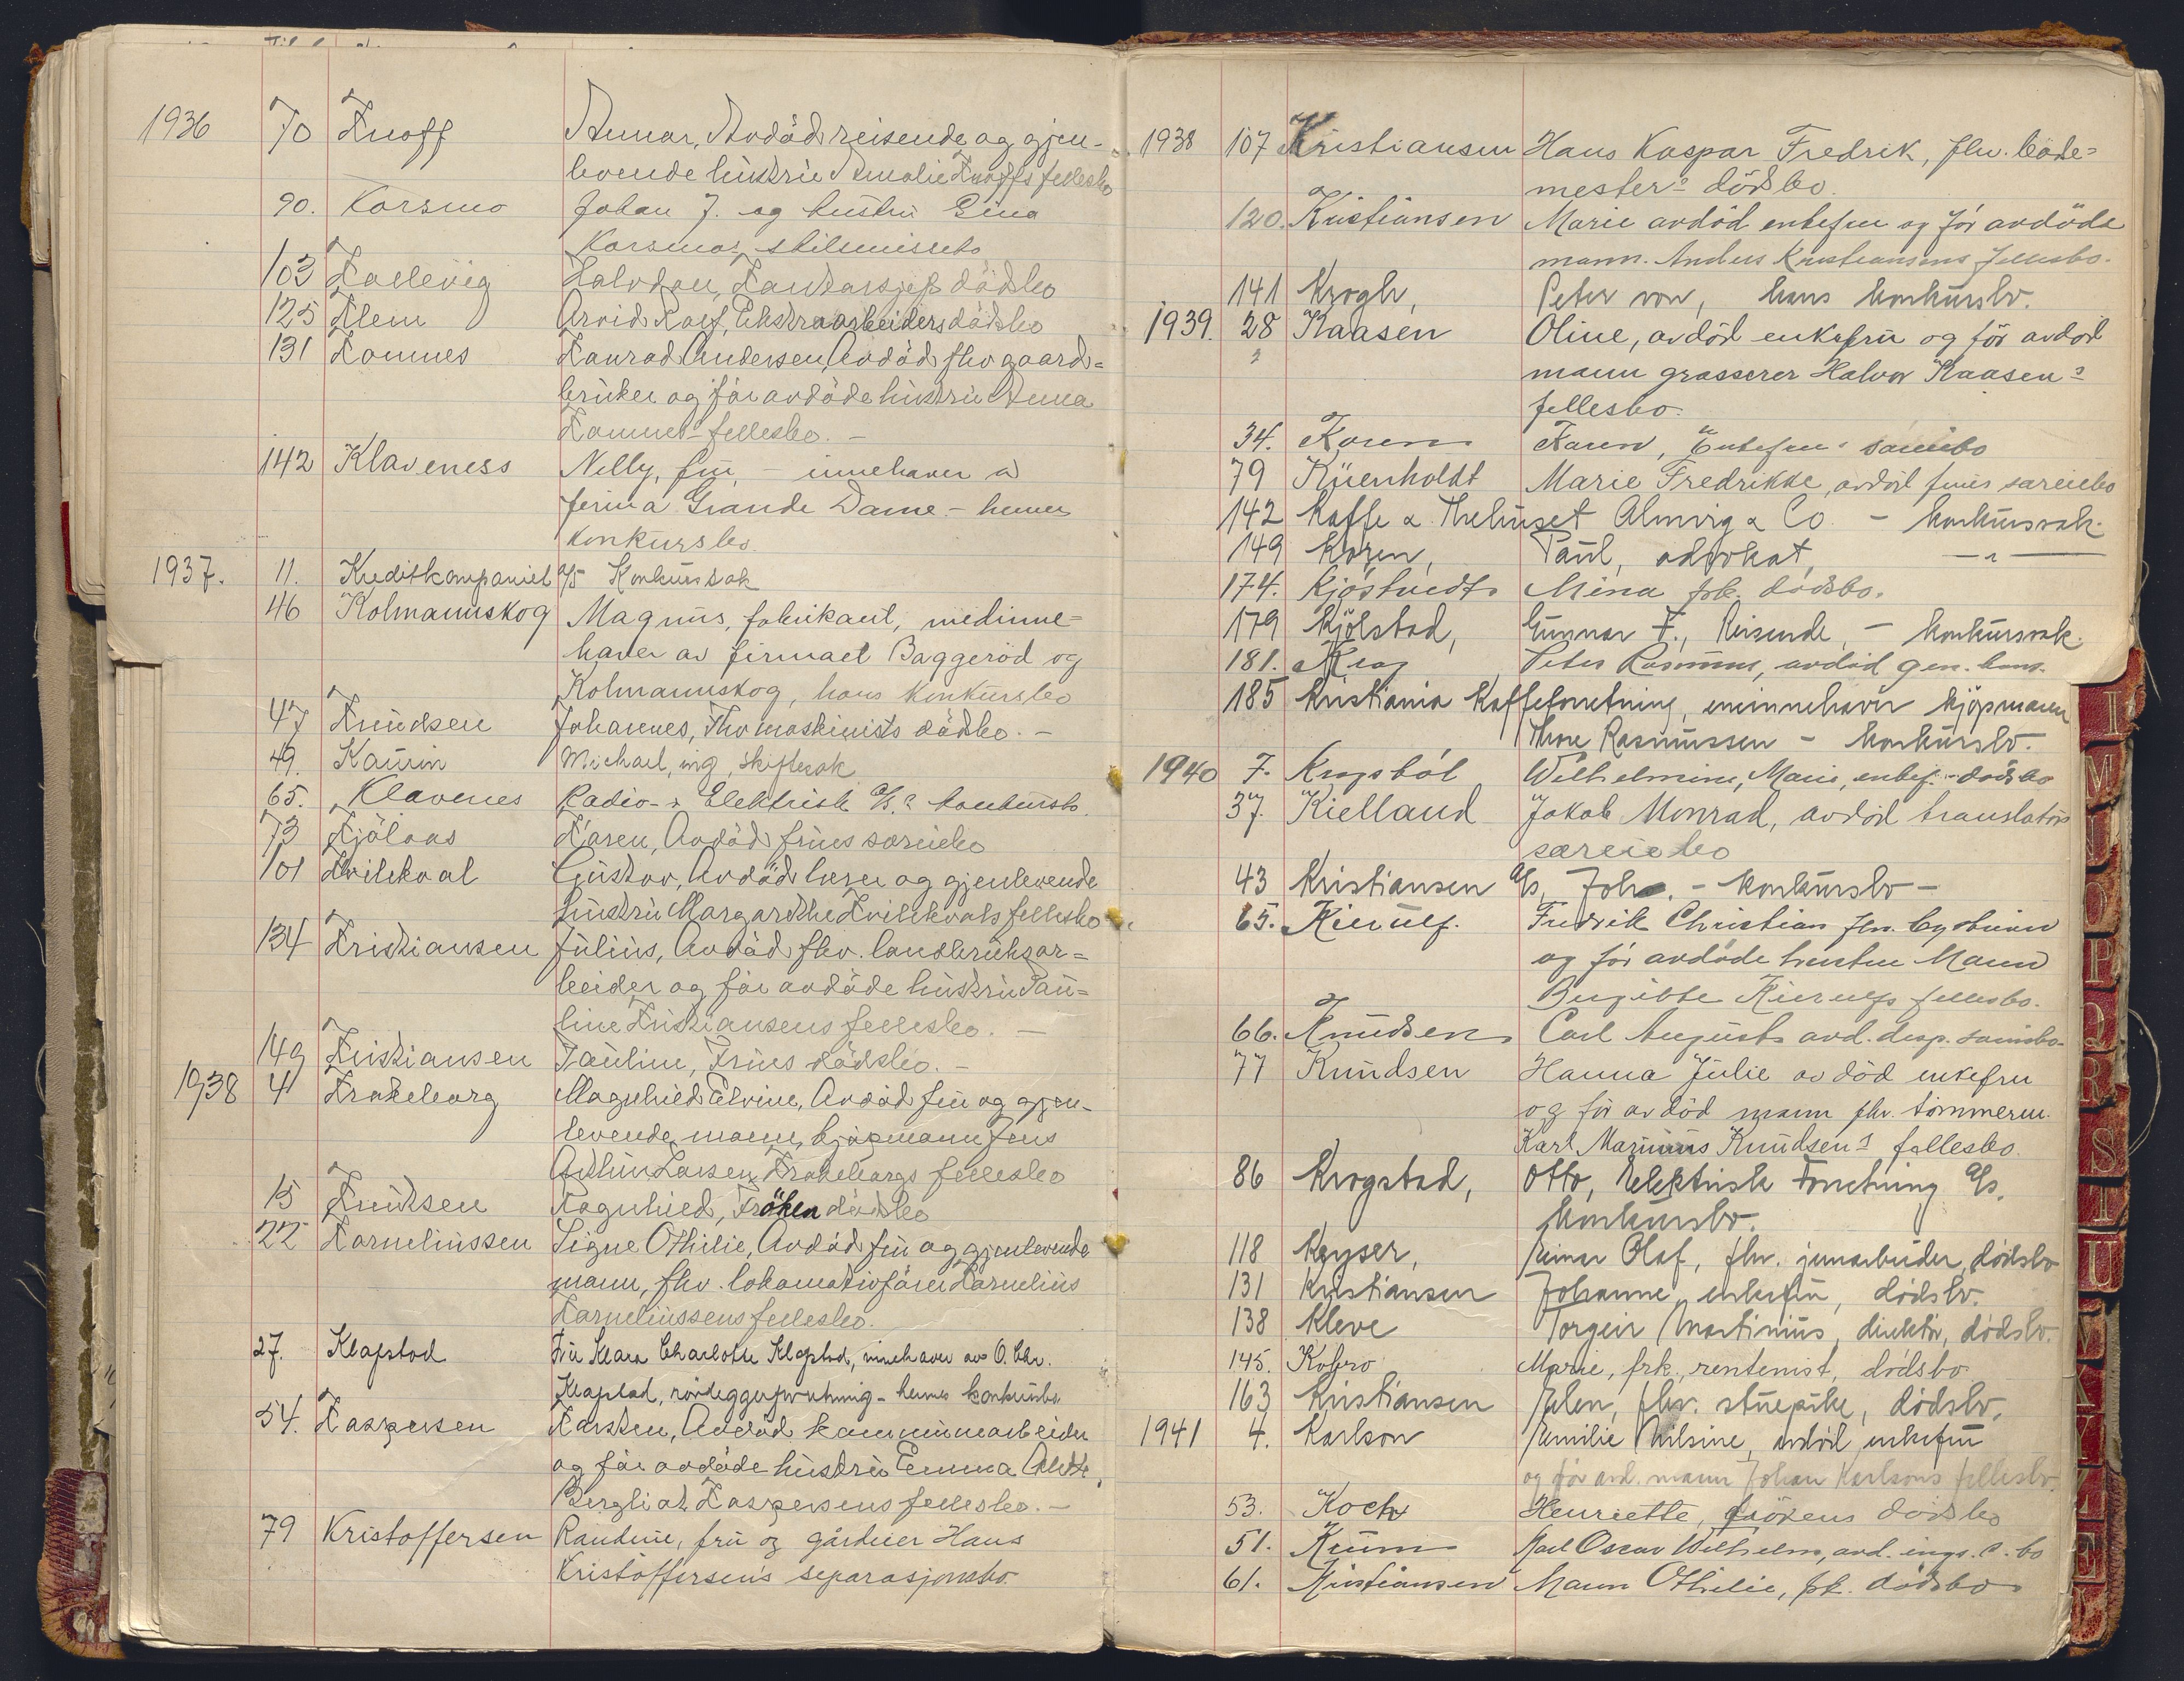 1936 70 Knoff Annar, Avdöd reisende og gjen-
levende hustru Amalie Knoffs fellesbo
90. Korsmo Johan J. og hustru Gina
Korsmos skilsmissebo
103 Kallevig Halvdan, Kontorsjef dödsbo
125 Klem Arvid Rolf, Ekstraarbeiders dödsbo
131 Komnes Konrad Andersen, Avdöd fhv gaard-
bruker og för avdöde hustru Anna
Komnes fellesbo. -
142 Klaveness Nelly, fru, - innehaver av
firma Grande Dame - hennes
konkursbo
1937. 11. Kreditkompaniet A/S Konkurssak
46 Kolmannskog Magnus, fabrikant, medinne-
haver av firmaet Baggeröd og
Kolmannskog, hans konkursbo
47 Knudsen Johannes, Fhv maskinists dödsbo. -
49. Kaurin Michael, ing, skiftesak
65. Klavenes Radio- & Elektrisk A/S.s konkursbo.
73 Kjölaas Karen, Avdöd frues særeiebo
101 Kvilekval Gustav, Avdöd lærer og gjenlevende
hustru Margarethe Kvilekvals fellesbo
134 Kristiansen Julius, Avdöd fhv. landbruksar-
beider og för avdöde hustru Pau-
line Kristiansens fellesbo. -
149 Kristiansen Pauline, Frues dödsbo. -
1938 4 Krokeborg Magnhild Elvine, Avdöd fru og gjen-
levende mann, kjöpmann Jens
Arthur Larsen Krokeborgs fellesbo
15 Knudsen Ragnhild, Fröken dödsbo
22 Korneliussen Signe Othilie, Avdöd fru og gjenlevende
mann, fhv. lokomotivförer Kornelius
Korneliussens fellesbo.
27. Klapstad Fru Klara Charlotte Klapstad, innehaver av O. Chr.
Klapstad, hennes konkursbo
54. Kaspersen Karsten, Avdöd kommunearbeider
og för avdöde hustru Emma
Bergliot Kaspersens fellesbo. -
79 Kristoffersen Randine, fru og gårdeier Hans
Kristoffersens separasjonsbo
1938 107 Kristiansen Hans Kaspar Fredrik, fhv. bade-
mesters dödsbo.
120. Kristiansen Marie avdöd enkefru og för avdöde
mann. Anders Kristiansens fellesbo.
141 Krogh, Peter von, hans konkursbo.
1939. 28 Kaasen Oline, avdöd enkefru og för avdöd
mann grosserer Halvor Kaasens
fellesbo.
34. Koren Karen, Enkefrus særeiebo
79 Küenholdt Marie Fredrikke, avdöd frues særeiebo
142 Kaffe & Thehuset Almvig & Co. - konkurssak.
149 Koren, Paul, advokat, - " -
174. Kjöstvedt Mina frk. dödsbo.
179 Kjölstad, Gunnar F., Reisende, - konkurssak.
181. Krag Peter Rasmus, avdöd gen. kons.
185 Kristiania Kaffeforretning, eneinnehaver kjöpmann
Thore Rasmussen - konkursbo.
1940 7. Krogsböl Wilhelmine, Marie, enkef. dödsbo
37. Kielland Jakob Monrad, avdöd translatörs
særeiebo
43 Kristiansen A/S, Joh. - konkursbo -
65. Kierulf. Fredrik Christian fhv.
og för avdöde hustru Maren
Birgitte Kierulfs fellesbo.
66. Knudsen Carl August avd. disp. særeiebo.
77 Knudsen Hanna Julie avdöd enkefru
og för avdöd mann fhv. tömmerm.
Karl Marinius Knudsens fellesbo.
86 Krogstad, Otto, Elektrisk Forretning A/S.
konkursbo.
118 Keyser, Einar Olaf, fhv. jernarbeider, dödsbo
131 Kristiansen Johanne, enkefru, dödsbo.
138 Kleve Torgeir Martinius, direktör, dödsbo.
145. Kobro Marie, frk., rentenist, dödsbo
163 Kristiansen Elen, fhv. stuepike, dödsbo.
1941 4. Karlson Emilie Nilsine, avdöd enkefru
og för avd. mann Johan Karlsons fellesbo.
53. Koch Henriette, frökens dödsbo
51. Krum Karl Oscar Wilhelm, avd. ings. d. bo
61. Kristiansen Maren Othilie, frk. dödsbo